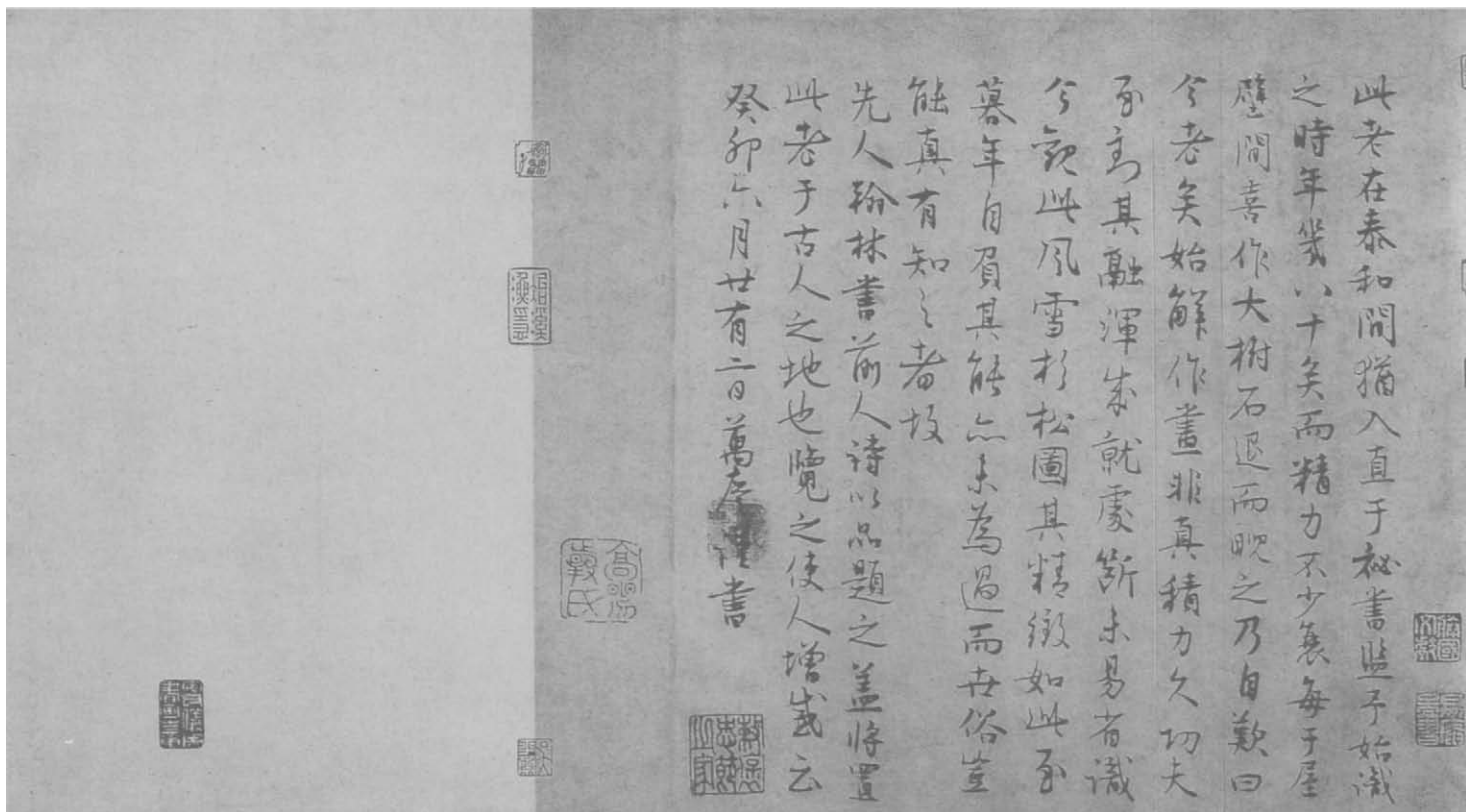 此老在泰和間猶入直于祕書監予始識
之時年幾八十矣而精力不少衰每于屋
壁間喜作大樹石退而睨之乃自歎曰
今老矣始解作畫非真積力久功夫
至到其融渾成就處斷未易省識
今觀此風雪杉松圖其精緻如此至
暮年自負其能亦未為過而世俗豈
能真有知之者故
先人翰林書前人詩以品題之蓋將置
此老于古人之地也覽之使人增感云
癸卯六月廿有二日萬慶謹書